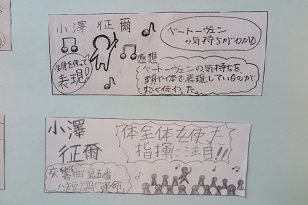 小澤 征爾
ベートーヴェン
の気持ちがわかる
全身を使って
表現!
感想
ベートーヴェンの気持ちを
顔や体で表現しているのが
すごく伝わった。
小澤
征爾
体全体を使った
指揮に注目!!
交響曲第五番
ハ短調「運命」